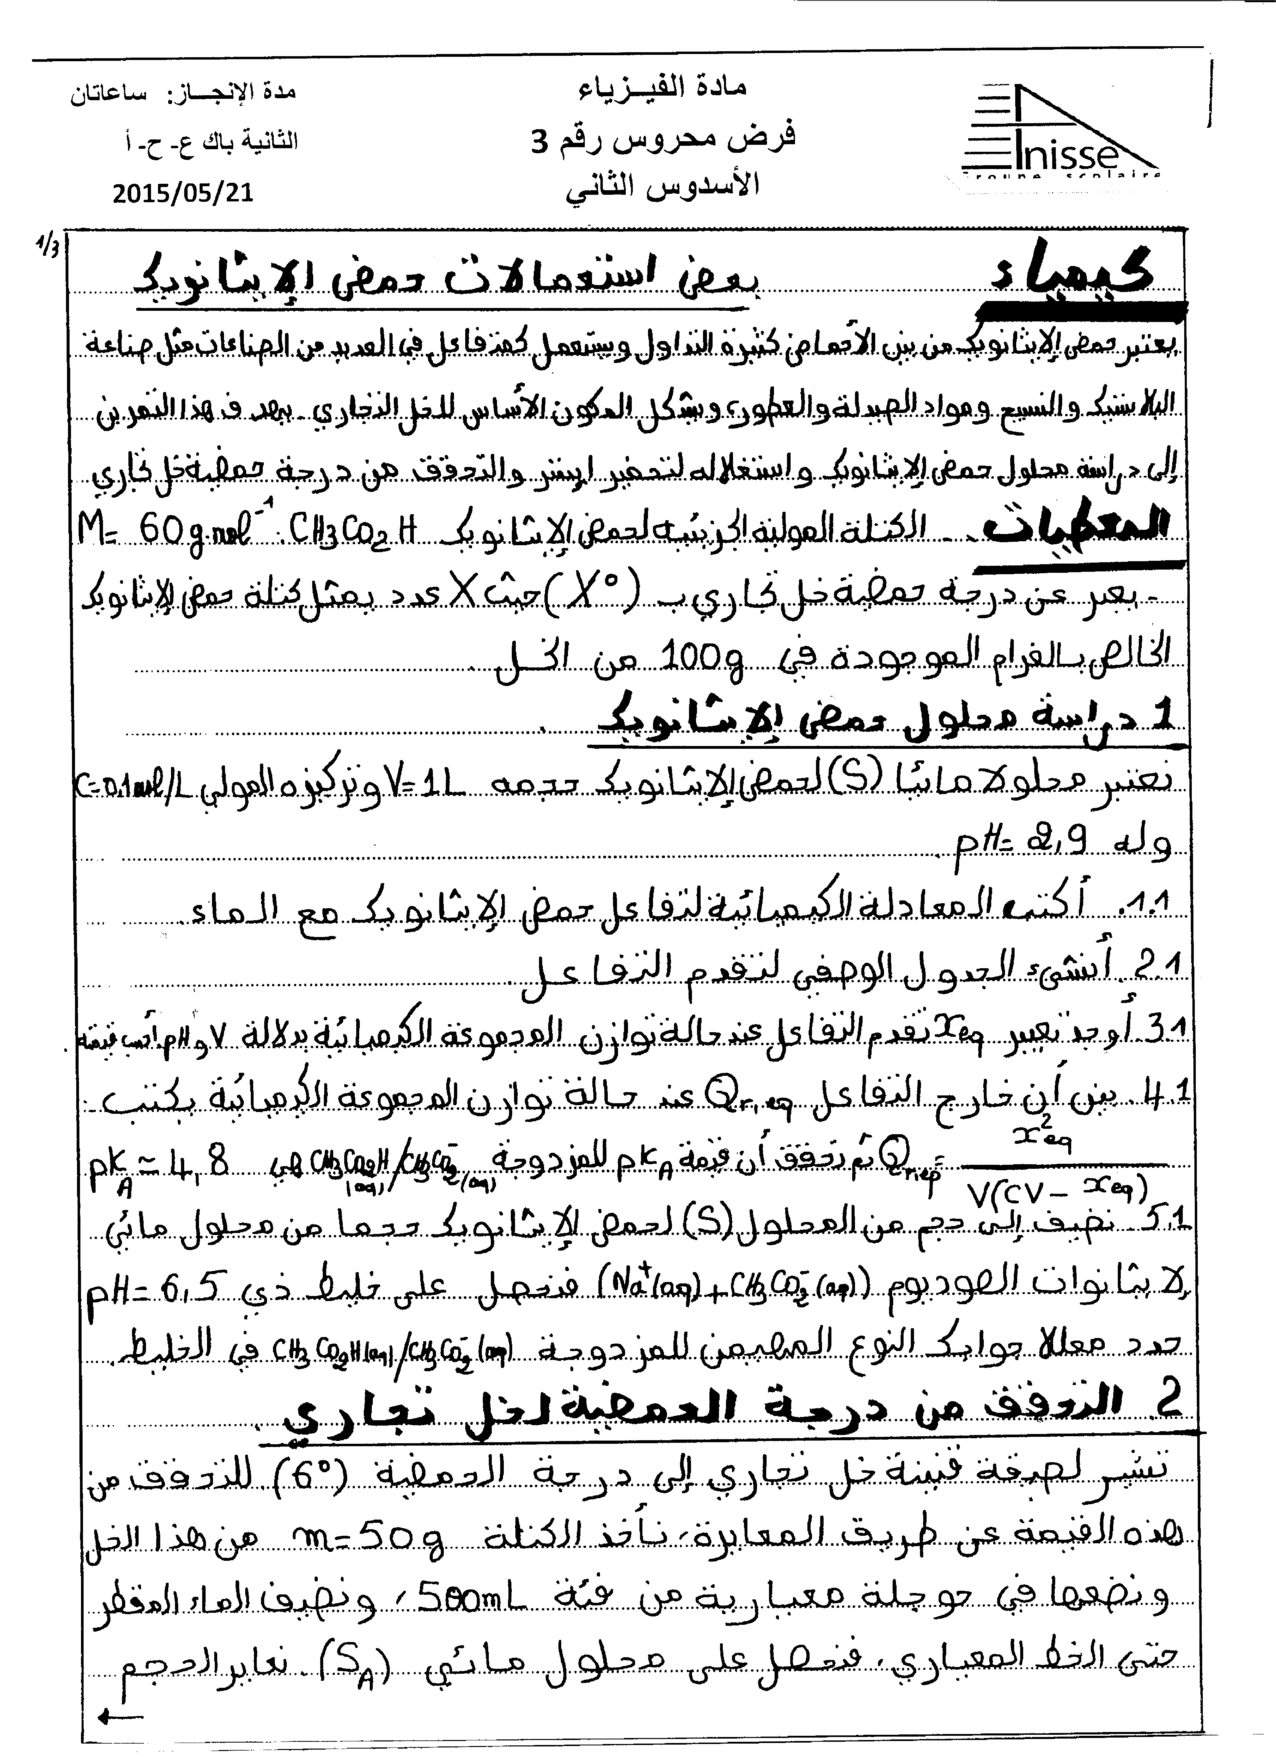 مدة الإنجاز: ساعاتان
الثانية باك ع- ح- أ
2015/05/21
مادة الفيزياء
فرض محروس رقم 3
الأسدوس الثاني
Anisse
Groupe scolaire
1/3
كيمياء بعض استعمالات حمض الإيثانويك
يعتبر حمض الإيثانويك من بين الأحماض كثيرة التداول ويستعمل كمتفاعل في العديد من الصناعات مثل صناعة
البلاستيك والنسيج ومواد الصيدلة والعطور، ويشكل المكون الأساس للخل التجاري. يهدف هذا التمرين
إلى دراسة محلول حمض الإيثانويك واستغلاله لتحضير إيستر والتحقق من درجة حمضية خل تجاري
المعطيات - الكتلة المولية الجزيئية لحمض الإيثانويك CH₃CO₂H . M= 60g.mol⁻¹
- يعبر عن درجة حمضية خل تجاري ب (X°) حيث X عدد يمثل كتلة حمض الإيثانويك
الخالص بالغرام الموجودة في 100g من الخل .
1 دراسة محلول حمض الإيثانويك .
نعتبر محلولا مائيا (S) لحمض الإيثانويك حجمه V=1L وتركيزه المولي C=0,1mol/L
وله pH=2,9 .
1.1. أكتب المعادلة الكيميائية لتفاعل حمض الإيثانويك مع الماء.
2.1. أنشئ الجدول الوصفي لتقدم التفاعل.
3.1. أوجد تعبير xeq تقدم التفاعل عند حالة توازن المجموعة الكيميائية بدلالة V و pH. أحسب قيمته .
4.1. بين أن خارج التفاعل Qr,eq عند حالة توازن المجموعة الكيميائية يكتب :
Qr,eq = x²eq / V(CV - xeq) ثم تحقق أن قيمة pKA للمزدوجة CH₃CO₂H(aq)/CH₃CO₂⁻(aq) هي pKA ≃ 4,8
5.1. نضيف إلى حجم من المحلول (S) لحمض الإيثانويك حجما من محلول مائي
لإيثانوات الصوديوم (Na⁺(aq)+CH₃CO₂⁻(aq)) فنحصل على خليط ذي pH=6,5
حدد معللا جوابك النوع المهيمن للمزدوجة CH₃CO₂H(aq)/CH₃CO₂⁻(aq) في الخليط.
2. التحقق من درجة الحمضية لخل تجاري .
تشير لصيقة قنينة خل تجاري إلى درجة الحمضية (6°). للتحقق من
هذه القيمة عن طريق المعايرة، نأخذ الكتلة m=50g من هذا الخل
ونضعها في حوجلة معيارية من فئة 500mL، ونضيف الماء المقطر
حتى الخط المعياري، فنحصل على محلول مائي (SA). نعاير الحجم